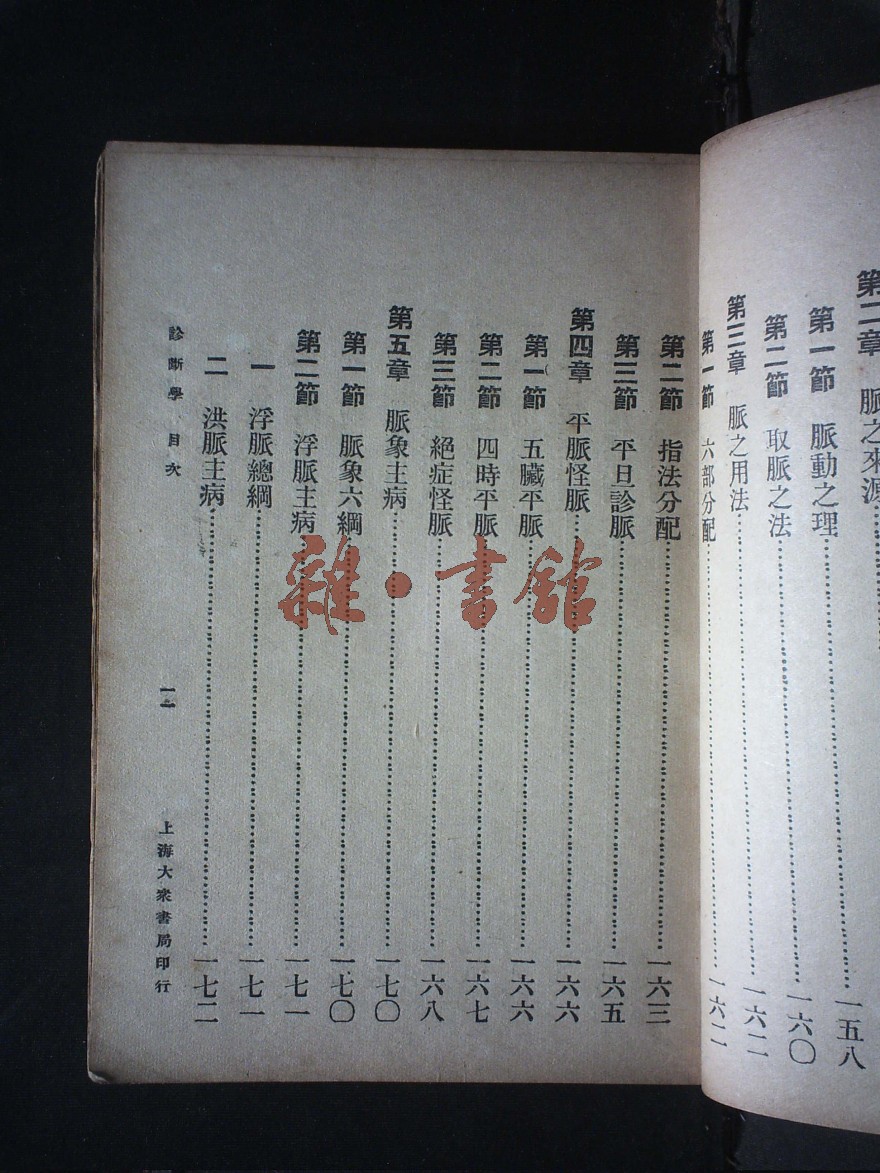 第二章 脈之來源
第一節 脈動之理 一五八
第二節 取脈之法 一六〇
第三章 脈之用法 一六二
第一節 六部分配 一六二
第二節 指法分配 一六三
第三節 平旦診脈 一六五
第四章 平脈怪脈 一六六
第一節 五臟平脈 一六六
第二節 四時平脈 一六七
第三節 絕症怪脈 一六八
第五章 脈象主病 一七〇
第一節 脈象六綱 一七〇
第二節 浮脈主病 一七一
一 浮脈總綱 一七一
二 洪脈主病 一七二
診斷學 目次 一一 上海大衆書局印行
雜·書館